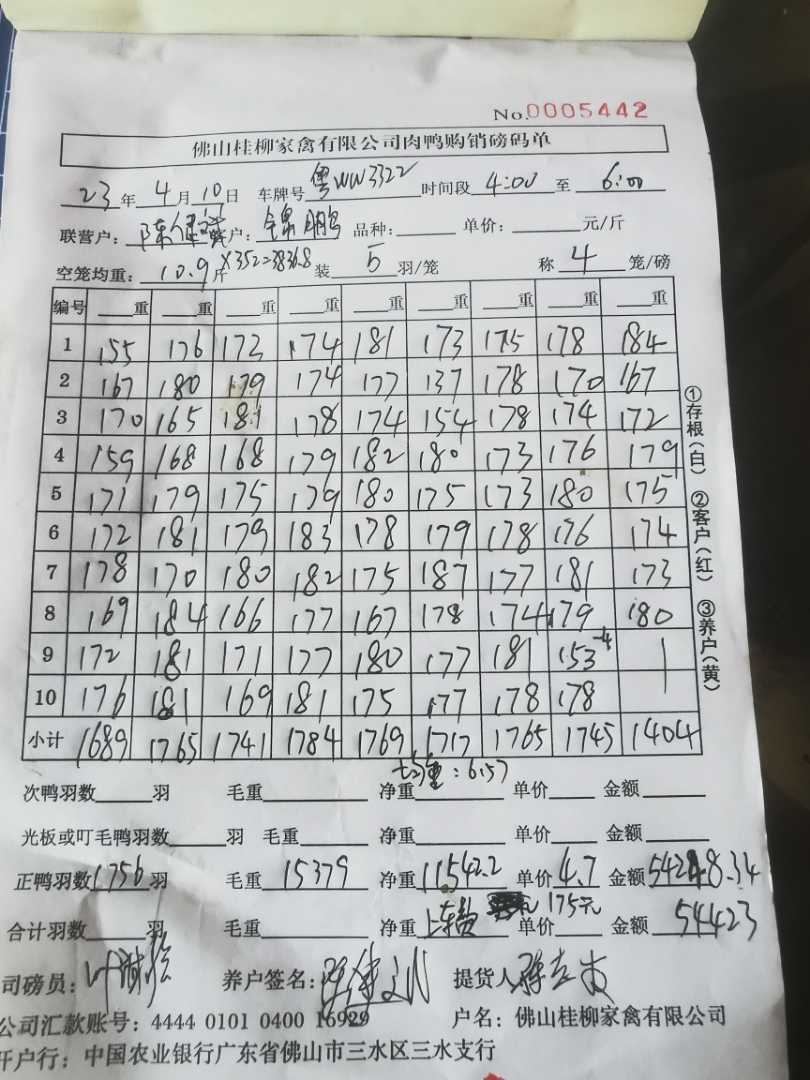 No.0005442
佛山桂柳家禽有限公司肉鸭购销磅码单
23年4月10日 车牌号粤WW3322 时间段4:00至6:00
联营户: 陈健 户: 锦鹏 品种: 单价: 元/斤
空笼均重: 10.9斤 ×352=3836.8 装5羽/笼 称4笼/磅
编号 重 重 重 重 重 重 重 重 重
1 155 176 172 174 181 173 175 178 184
2 167 180 179 174 177 137 178 170 167
3 170 165 181 178 174 154 178 174 172
4 159 168 168 179 182 180 173 176 179
5 171 179 175 179 180 175 173 180 175
6 172 181 179 183 178 179 178 176 174
7 178 170 180 182 175 187 177 181 173
8 169 184 166 177 167 178 174 179 180
9 172 181 171 177 180 177 181 153-4
10 176 181 169 181 175 177 178 178
小计 1689 1765 1741 1784 1769 1717 1765 1745 1404
①存根(白) ②客户(红) ③养户(黄)
均重:6.57
次鸭羽数 羽 毛重 净重 单价 金额
光板或叮毛鸭羽数 羽 毛重 净重 单价 金额
正鸭羽数1756羽 毛重15379 净重11542.2 单价4.7 金额54248.34
合计羽数 羽 毛重 净重上车费 单价175元 金额54423
司磅员: 养户签名: 提货人
公司汇款账号: 4444 0101 0400 16929 户名: 佛山桂柳家禽有限公司
开户行: 中国农业银行广东省佛山市三水区三水支行